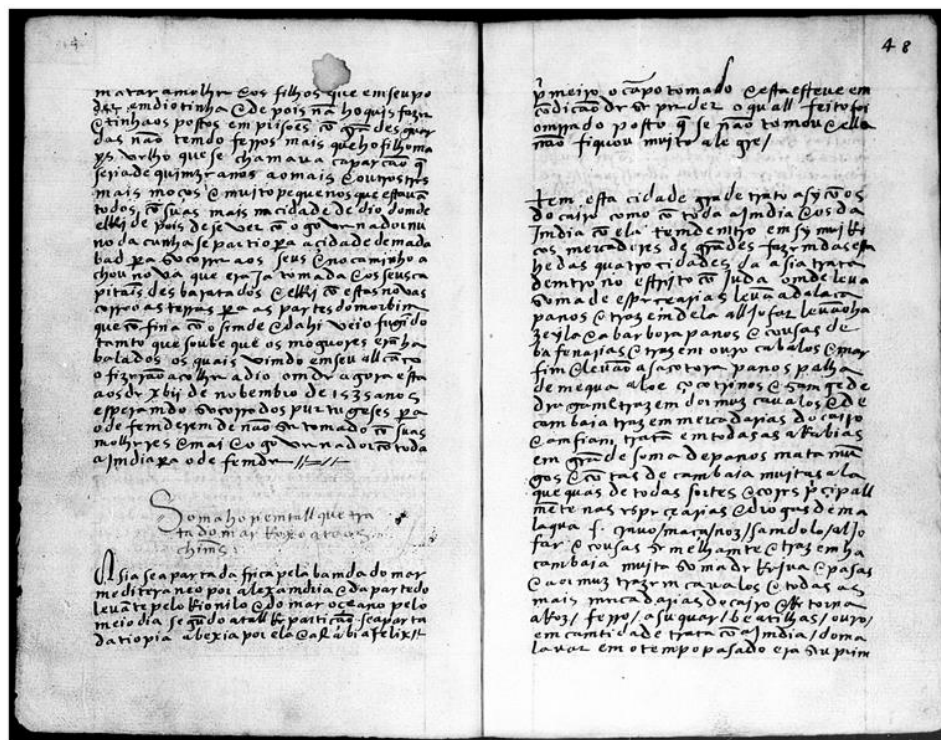 matar a molher & os filhos que em seu po
der em dio tinha & depois nã ho quis fazer
& tinha os postos em prisões cõ grãdes guar
das não temdo ferros mais que ho filho ma
ys velho que se chamava caparcão q̃
seria de quimze anos ao mais & outros tres
mais moços & muito pequenos que estavã
todos cõ suas mais na cidade de dio domde
elRei depois de se ver cõ o governador nu
no da cunha se partio pera a cidade de mada
bad pera socorrer aos seus & no caminho a
chou nova que era ja tomada & os seus ca
pitais desbaratados & elRei cõ estas novas
correo as terras pera as partes do
que cõfina cõ o simde & dahi veio fugido
tamto que soube que os moguores erã ha
balados os quais vimdo em seu allcãço
o fizerão acolher a dio omde agora esta
aos de xbii de nobembro de 1535 anos
esperamdo socorro dos purtugeses pera
o defemderem de não ser tomado cõ suas
molheres & mai & o governador cõ toda
a Imdia pera o defemder
Soma horiemtall que tra
ta do mar Roxo atee os
chims
Asia se aparta da frica pela bamda do mar
mediteraneo por alexamdria & da parte do
levãte pelo Rio nilo & do mar oceano pelo
meio dia segũdo atall Reparticão se aparta
da tiopia abexia por ela & arabia felix
48
p̃meiro o capo tomado & esta esteve em
cõdicão de se perder o quall feito foi
omrrado posto q̃ se não tomou & ella
não fiquou muito alegre /
Item esta cidade grãde trato asy cõ os
do cairo como cõ toda a Imdia & os da
Imdia cõ ela tem demtro em sy mui Ri
cos mercadores de grãdes fazemdas esta
he das quatro cidades da asia trata
demtro no estreito cõ Juda omde leva
soma de especearias levã a dalaca
panos & trazem dela alljofar levão ha
zeyla & a barbora panos & cousas de
bafenarias & trazem ouro cavalos & mar
fim & levão a sacotora panos palha
de mequa aloe cocotrinos & samge de
dragam & trazem dormuz cavalos & de
cambaia trazem mercadarias do cairo
& amfiam, tratã em todas as aRabias
em grãde soma de panos mata mun
gos & cõtas de cambaia muitas ala
quequas de todas sortes & cores p̃cipall
mẽte nas espeçearias & drogas de ma
laqua s. cravo / maca / noz / samdolo / aljo
far & cousas semelhamte & trazem ha
cambaia muita soma de Ruiva & pasas
& a ormuz trazem cavalos & todas as
mais mercadarias do cairo & Retorna
aRoz / ferro / asuquar / beatilhas / ouro /
em camtidade trata cõ a Imdia / do ma
lavar em o tempo pasado era seu prim